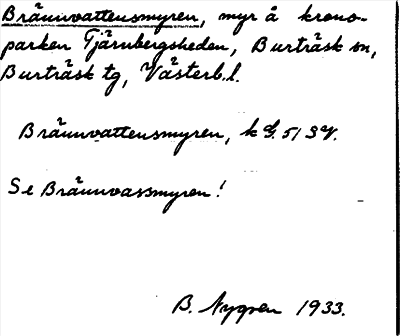 Brännvattensmyren, myr å krono-
parken Tjärnbergsheden, Burträsk sn,
Burträsk tg, Västerb. l.
Brännvattensmyren, k G. 51 3 V.
Se Brännvassmyren!
B. Nygren 1933.